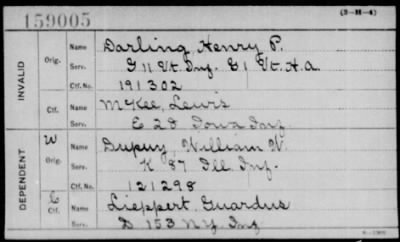 159005
(3-M-4)
INVALID
Orig. Name Darling, Henry P.
Serv. G 11 Vt. Inf. E 1 Vt. H.A.
Ctf. No. 191302
Ctf. Name McKee, Lewis
Serv. E 28 Iowa Inf
DEPENDENT
W Orig. Name Dupuy, William W.
Serv. K 87 Ill. Inf.
Ctf. No. 121298
C Ctf. Name Lieppert, Guardus
Serv. D 153 N.Y. Inf